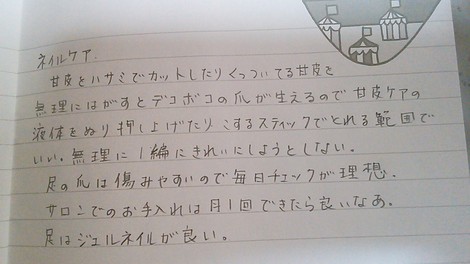 ネイルケア.
甘皮をハサミでカットしたりくっついてる甘皮を
無理にはがすとデコボコの爪が生えるので甘皮ケアの
液体をぬり押し上げたりこするスティックでとれる範囲で
いい。無理に1編にきれいにしようとしない。
足の爪は傷みやすいので毎日チェックが理想.
サロンでのお手入れは月1回できたら良いなあ。
足はジェルネイルが良い。